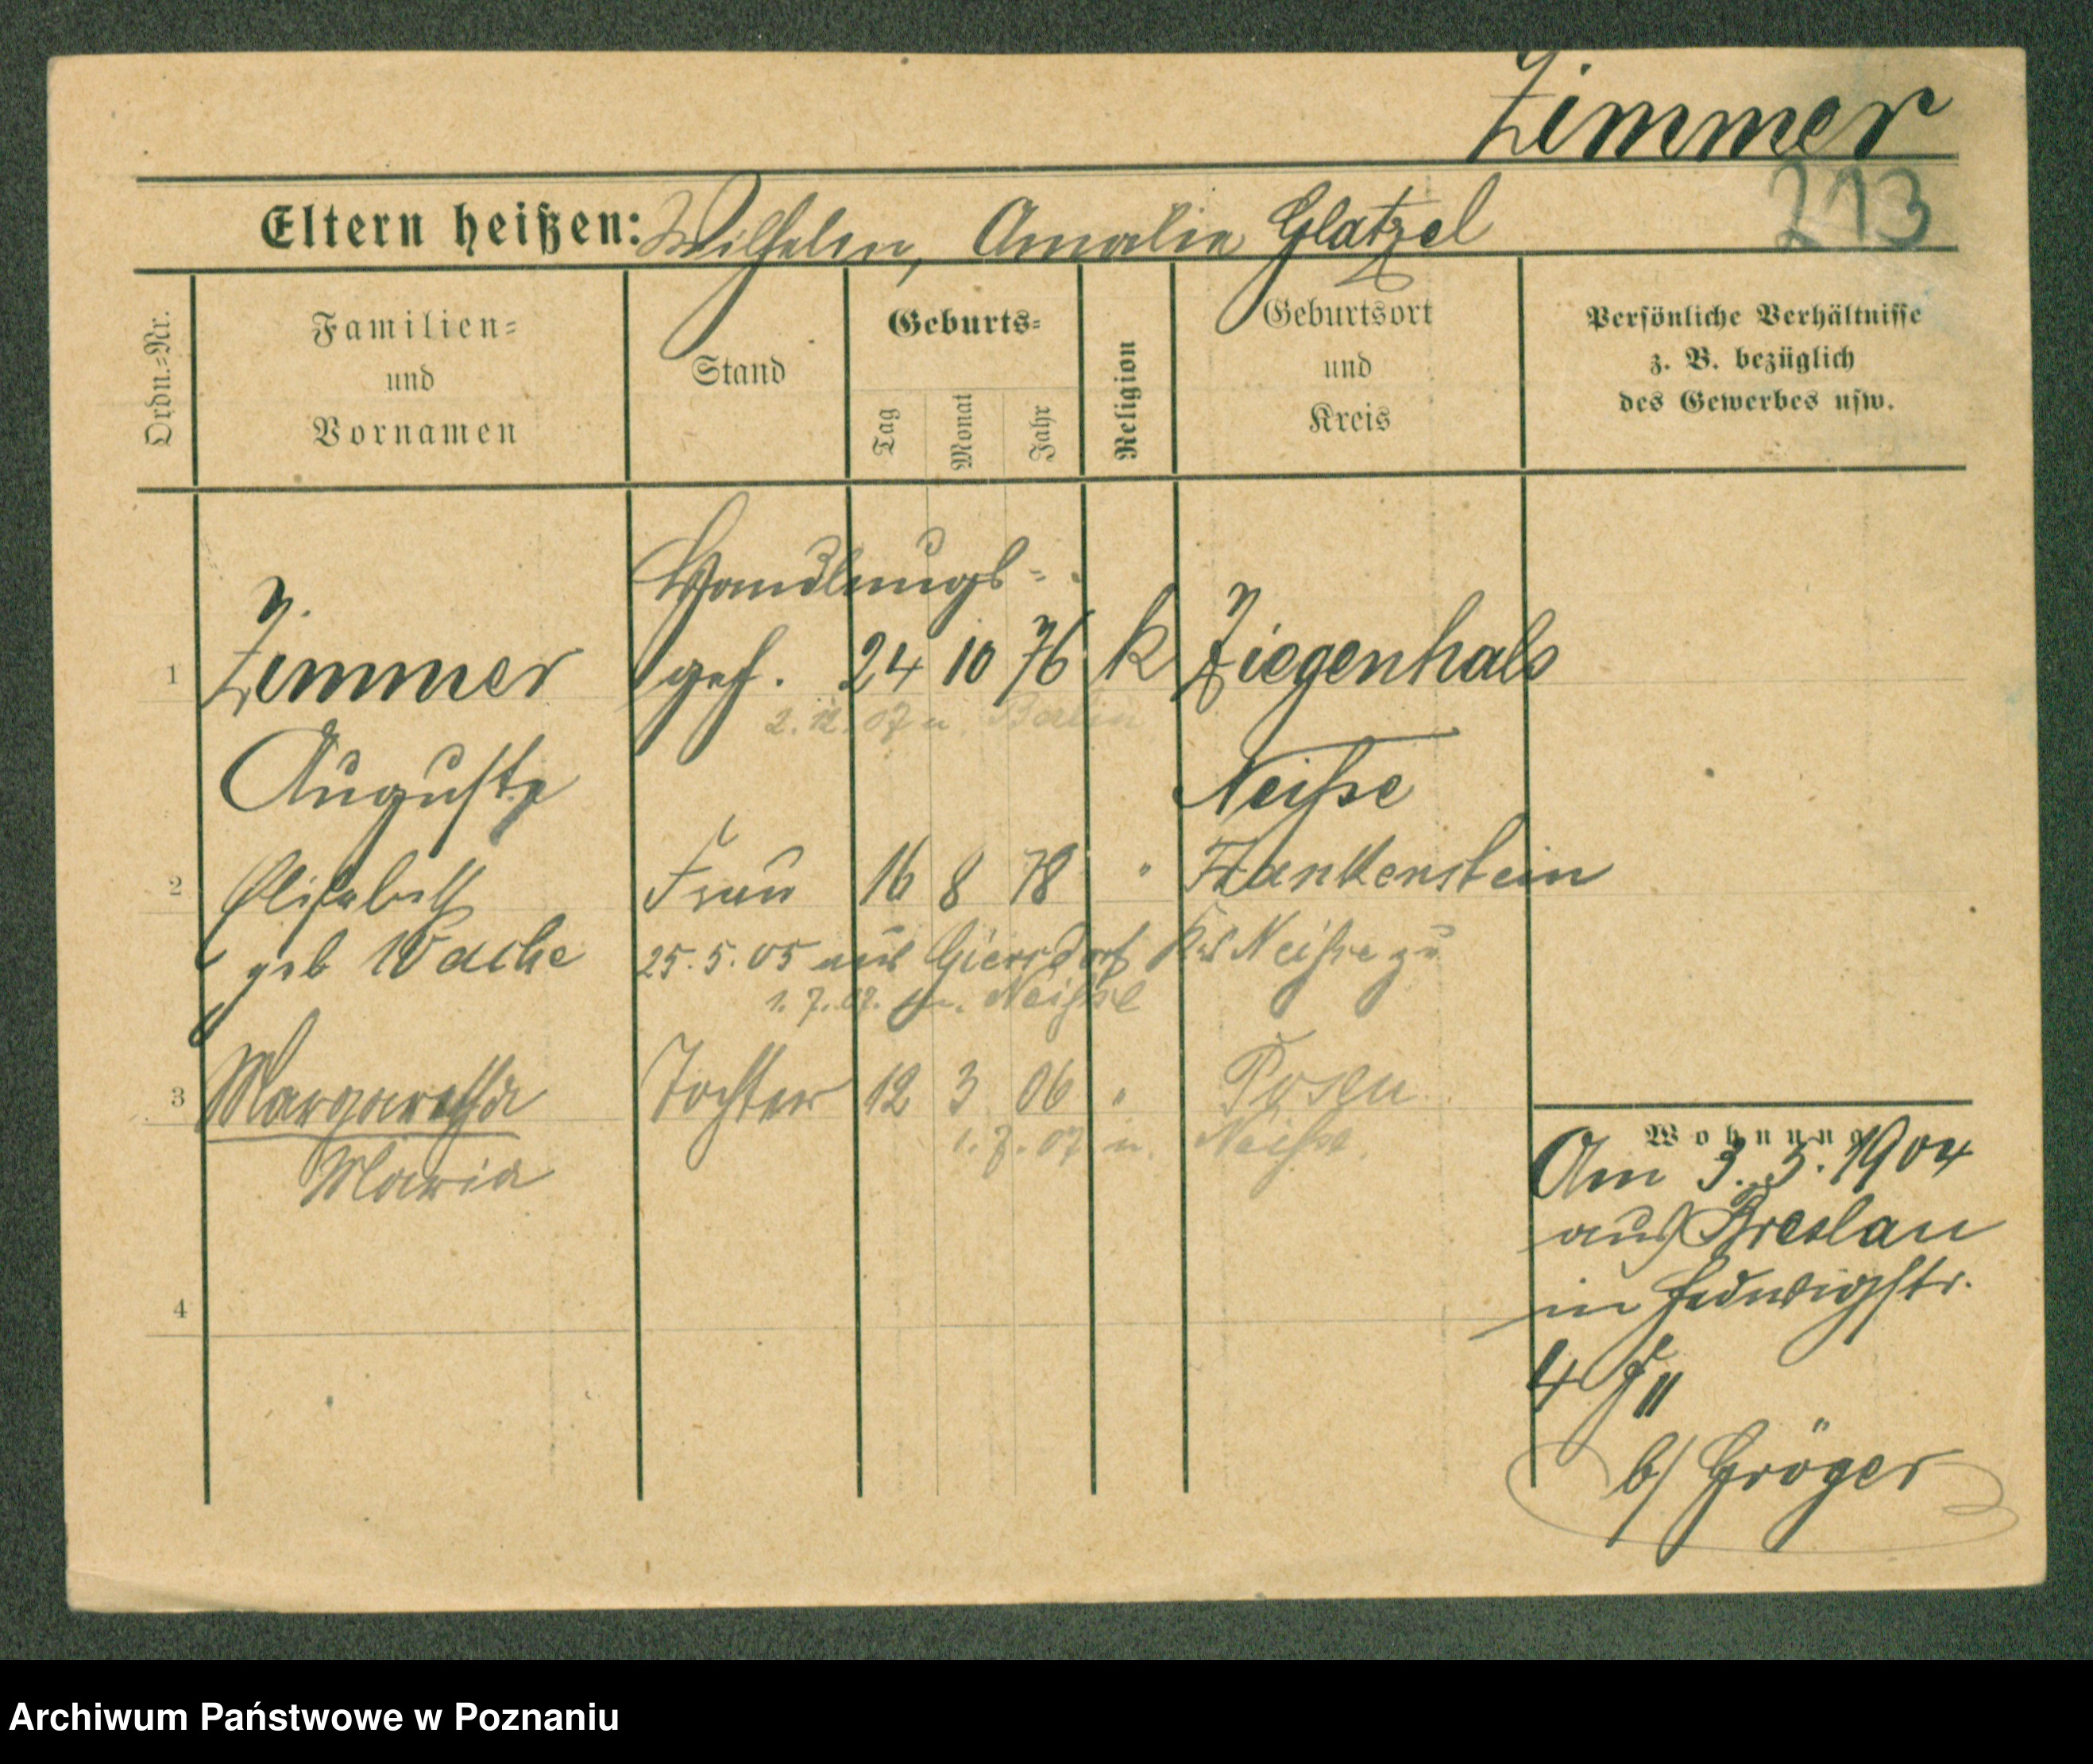 Zimmer
213
Eltern heißen: Wilhelm, Amalie Glatzel
Ordn.-Nr.
Familien- und Vornamen
Stand
Geburts-
Tag
Monat
Jahr
Religion
Geburtsort und Kreis
Persönliche Verhältnisse
z. B. bezüglich
des Gewerbes usw.
Handlungs-
1 Zimmer geh. 24 10 76 k Ziegenhals
2. 12. 07 n. Berlin
Auguste Neiße
2 Elisabeth Frau 16 8 78 " Frankenstein
geb Wache 25. 5. 05 aus Giersdorf Krs Neiße zu
1. 7. 07. n. Neiße
3 Margaretha Tochter 12 3 06 " Posen
1. 7. 07 n. Neiße.
Maria
Wohnung
Am 3. 5. 1904
aus Breslau
in Hedwigstr.
4
4 II
b/ Gröger
Archiwum Państwowe w Poznaniu